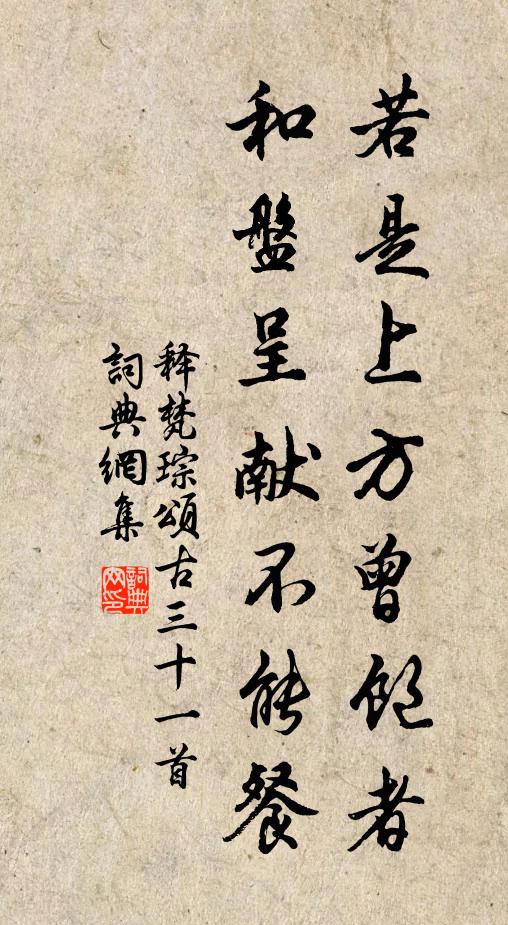 若是上方曾飽者
和盤呈献不能餐
释梵琮頌古三十一首
詞典網集
詞典
网印